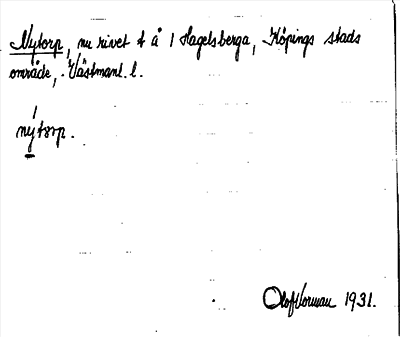 Nytorp, nu rivet t å 1 Hagelsberga, Köpings stads
område, Västmanl. l.
nýtorp.
Olof Norman 1931.